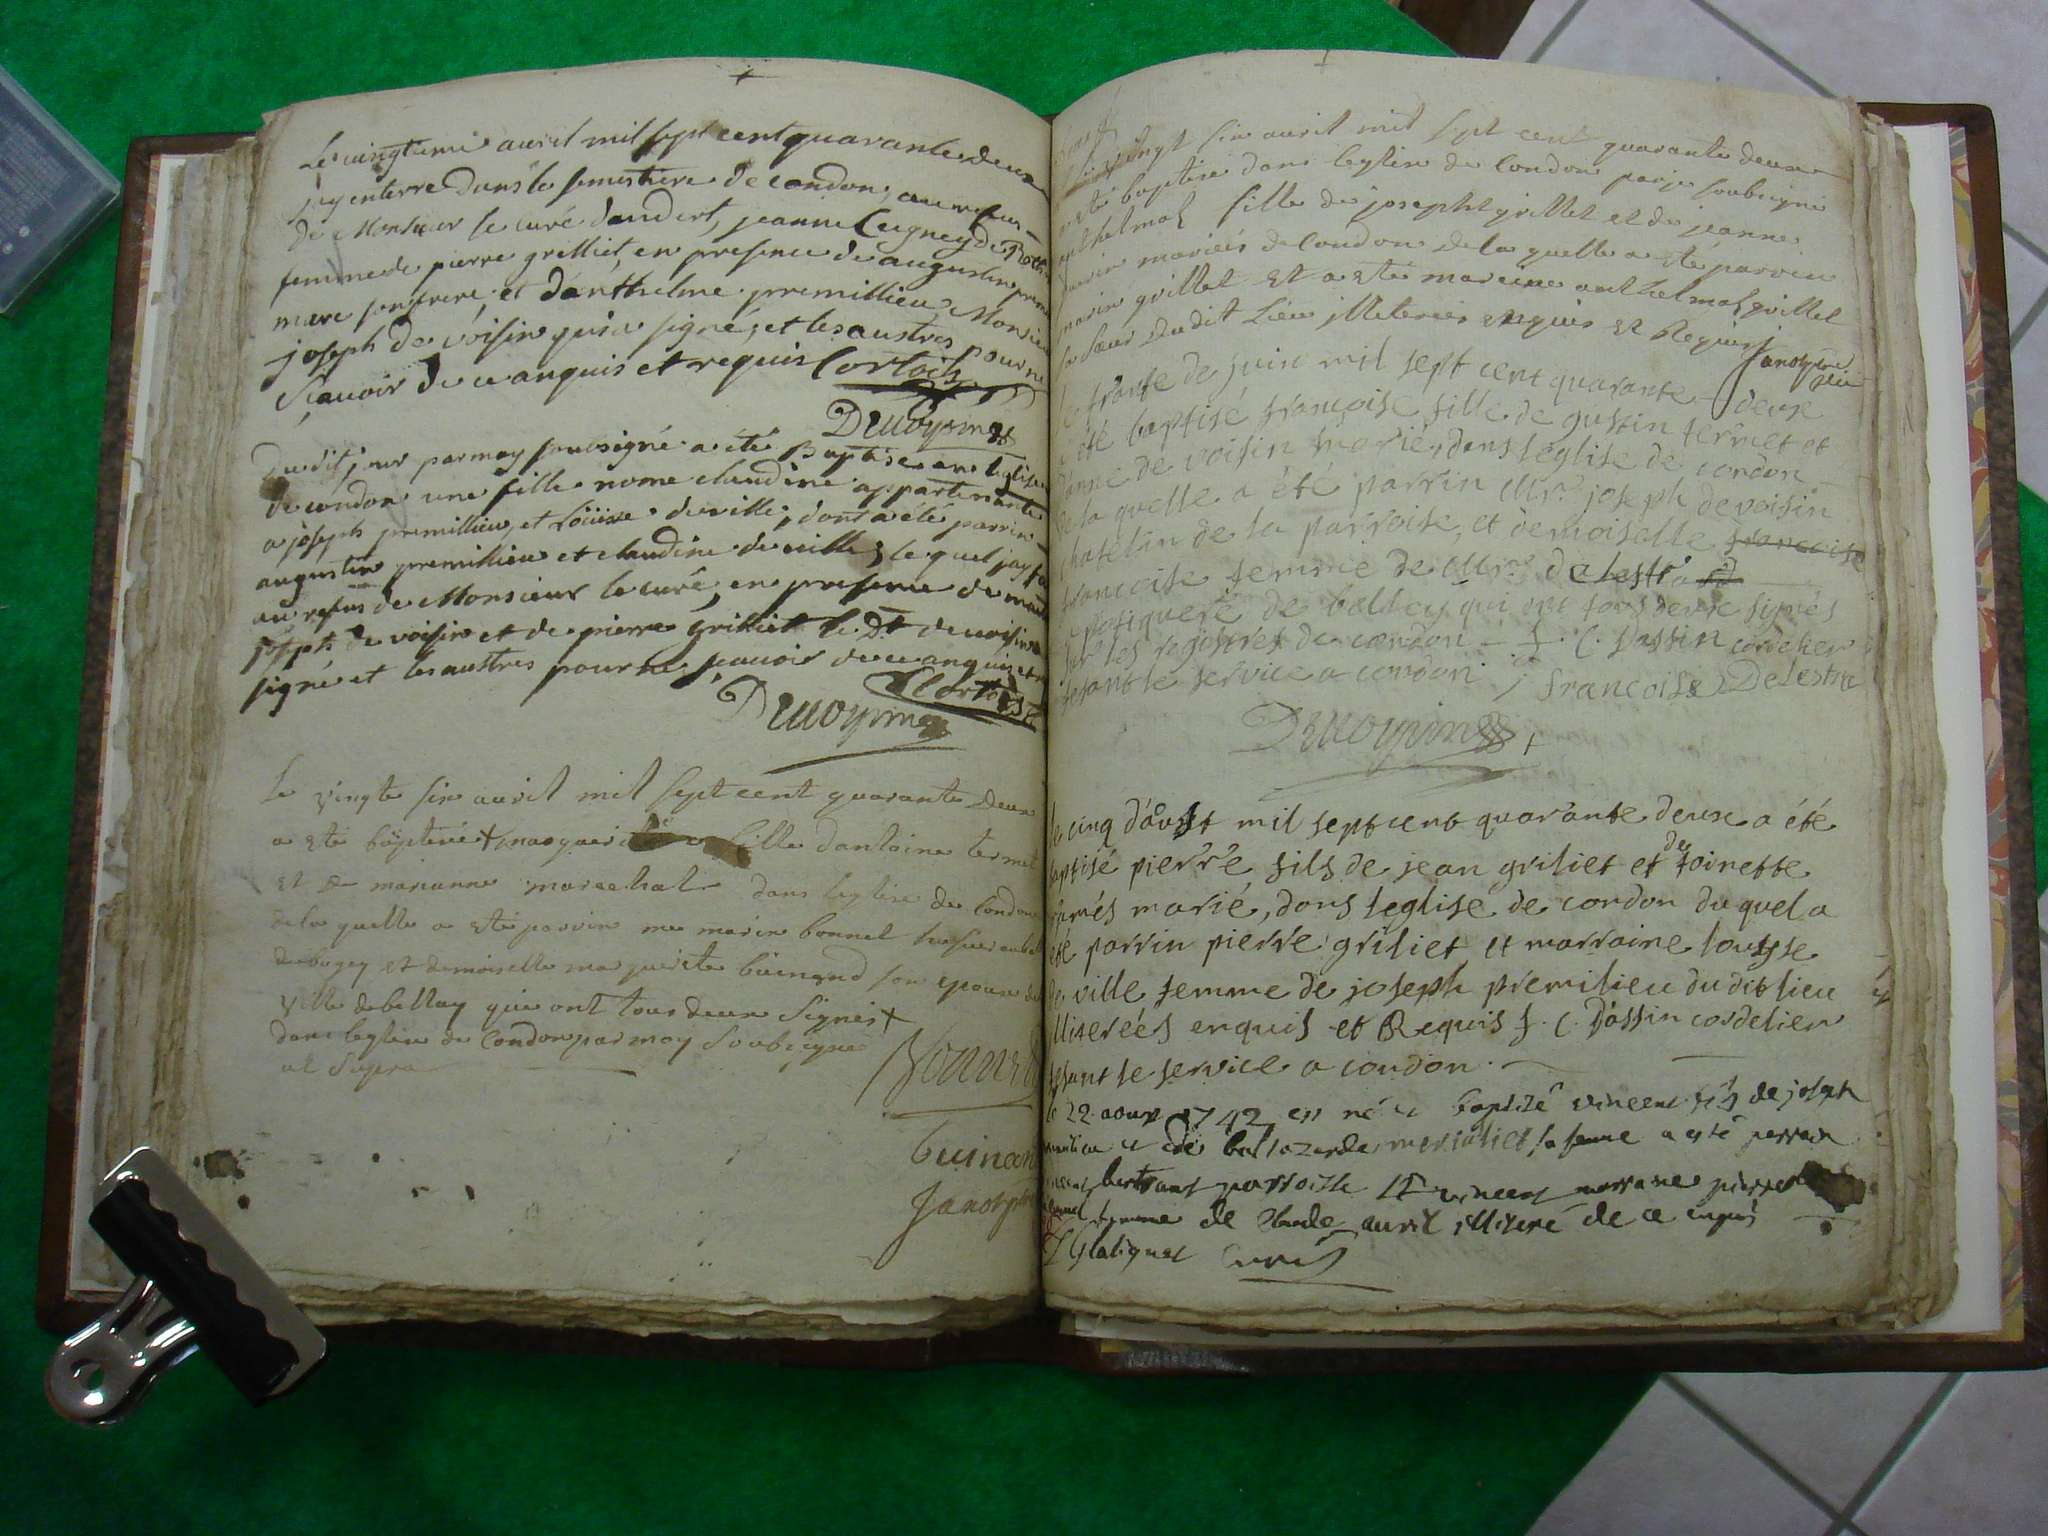 Le vingtieme avril mil sept cent quarante deux
jay enterre dans le semestiere de condon, au refus
de Monsieur le curé dandert, jeanne
femme de pierre grilliet, en presence de augustin
marc son frere, et danthelme premillieu, Monsieur
joseph de voisin qui a signé, et les austres pour ne
sçavoir de ce anquis et requis Cortois
Devoysin
Dudit jour par moy soubsigné a été Baptisee en leglise
de condon une fille nome claudine appartenante
a joseph premillieu, et Loüisse deville, dont a été parrin
augustin premillieu et claudine deville, le quel jay fait
au refus de Monsieur le curé, en presence de
joseph de voisin et de pierre grilliet le Dt devoisin
signé et les austres pour ne sçavoir de ce anquis et
Cortois
Devoysin
Le vingte six avril mil sept cent quarante deux
a ste baptisée + fille dantoine termet
et de marianne marechal dans leglise de Condon
de la quelle a ste parrin me marin bonnet
de bugey et demoiselle marguerite guinand son epouse de
ville de bellay qui ont tous deux signés +
dans leglise de Condon par moy soubsigné
ut supra
Bonnet
Guinand
vingt six avril mil sept cent quarante deux
a ste baptisée dans leglise de Condon par je soubsigné
fille de joseph grillet et de jeanne
mariés de Condon de la quelle a sté parrin
marin grillet et a sté mareine grillet
sa sœur dudit Lieu illiterés enquis et Requis
Le trante de juin mil sept cent quarante deux
a été baptisé françoise fille de gustin termet et
danne de voisin marié, dans leglise de condon
de la quelle a été parrin Mr. joseph de voisin
chatelin de la parroise, et demoiselle francoise
francoise femme de Mr. delestra
de belley qui ont tous deux signés
sur les registres de condon f. C. Dassin cordelier
fesant le service a condon
francoise Delestra
Devoysin
le cinq d'aoust mil sept cent quarante deux a été
baptisé pierre fils de jean griliet et de toinette
marié, dans leglise de condon du quel a
été parrin pierre griliet et marraine louisse
de ville femme de joseph premilieu du dit lieu
illiterées enquis et Requis f. C. Dassin cordelier
fesant le service a condon.
le 22 aoust 1742 est né et baptizé vincent fils de joseph
et de baltazarde sa femme a esté parrain
bertrand parroisse St vincent marraine pierre
femme de Claude avril illiteré de ce enquis
curé